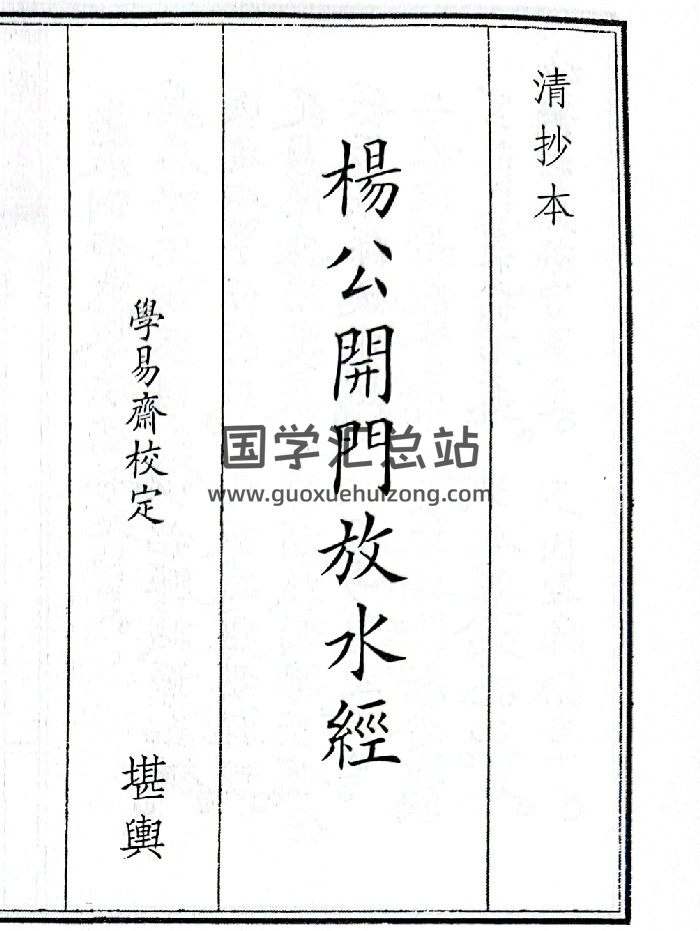 清抄本
楊公開門放水經
學易齋校定
堪輿
国学汇总站
www.guoxuehuizong.com